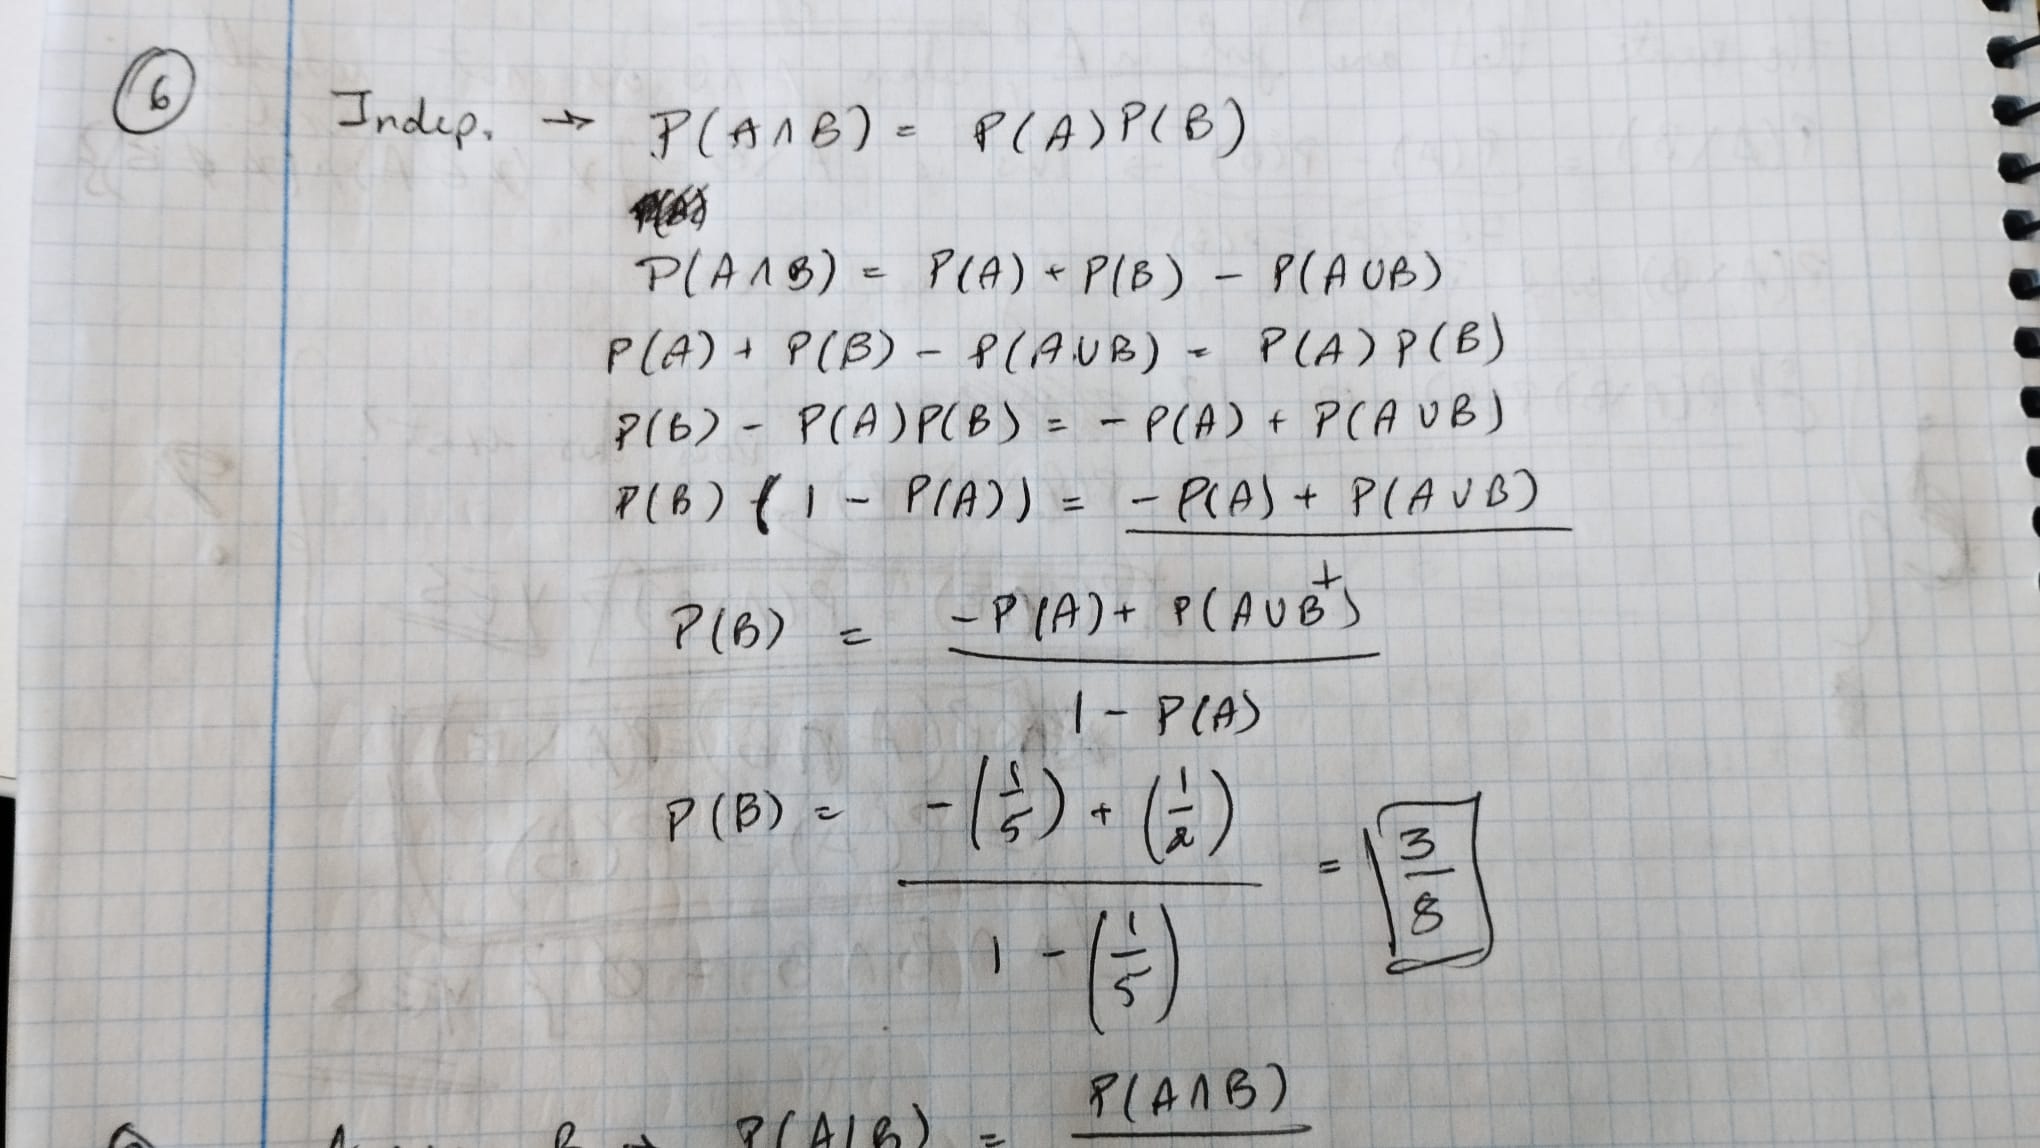 6 Indep. → P(A∩B) = P(A)P(B)
P(A∩B) = P(A) + P(B) - P(A∪B)
P(A) + P(B) - P(A∪B) = P(A)P(B)
P(B) - P(A)P(B) = -P(A) + P(A∪B)
P(B)(1 - P(A)) = -P(A) + P(A∪B)
P(B) = (-P(A) + P(A∪B)) / (1 - P(A))
P(B) = (-(1/5) + (1/2)) / (1 - (1/5)) = 3/8
P(A|B) = P(A∩B)